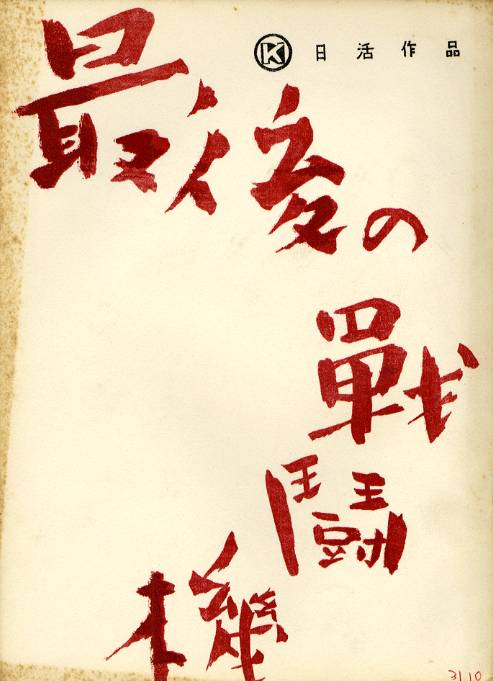 K 日活作品
最後の
戰
鬪
機
31.10